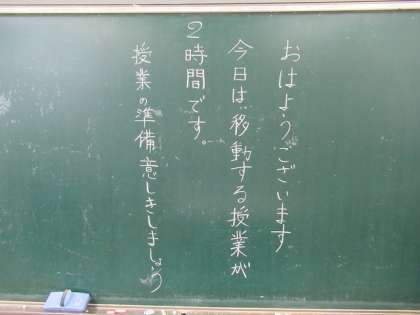 おはようございます
今日は移動する授業が
2時間です。
授業の準備意しきしましょう